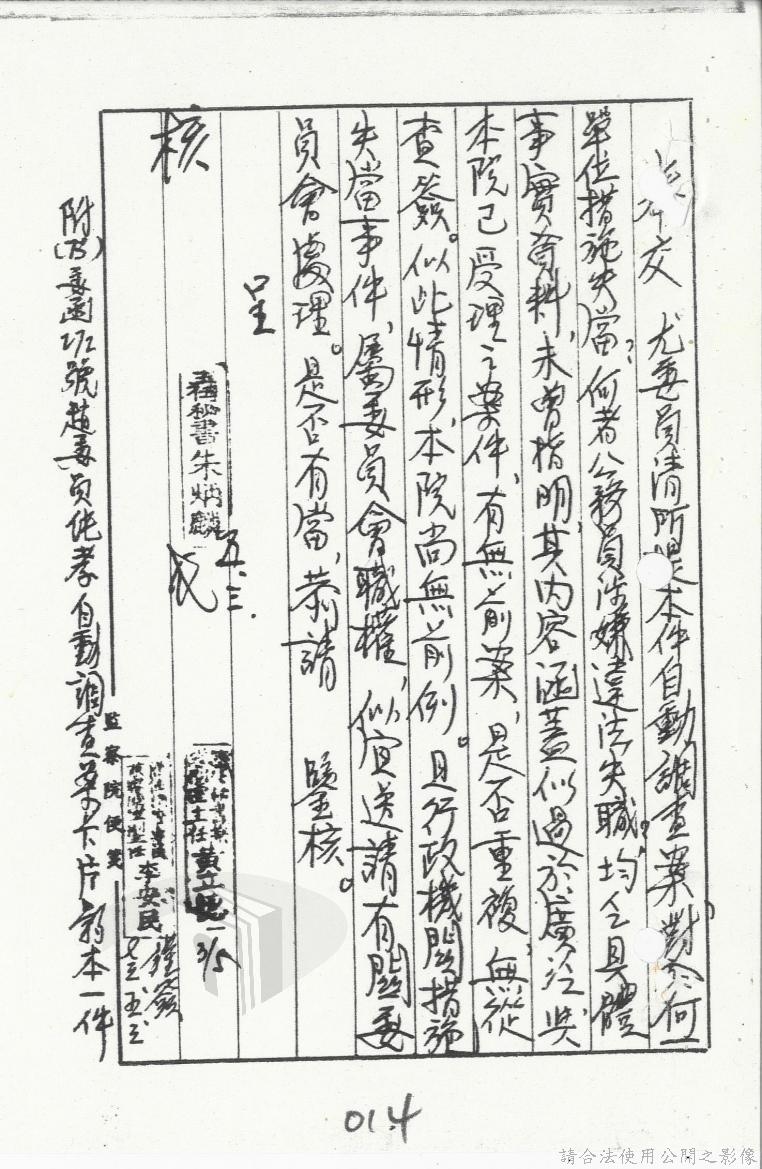 交 尤委員清所提本件自動調查案對於何一
單位措施失當、何者公務員涉嫌違法失職。均無具體
事實資料、未曾指明、其內容涵蓋似過於廣泛與
本院已受理之案件、有無前案、是否重複、無從
查簽。似此情形、本院尚無前例。且行政機關措施
失當事件、屬委員會職權、似宜送請有關委
員會處理。是否有當、恭請 鑒核。
呈
核
秘書朱炳麟
五.三.
主任黃立
3/5
李安民
謹簽
監察院便箋
附(75)委函號趙委員佐孝自動調查單卡片影本一件
014
請合法使用公開之影像